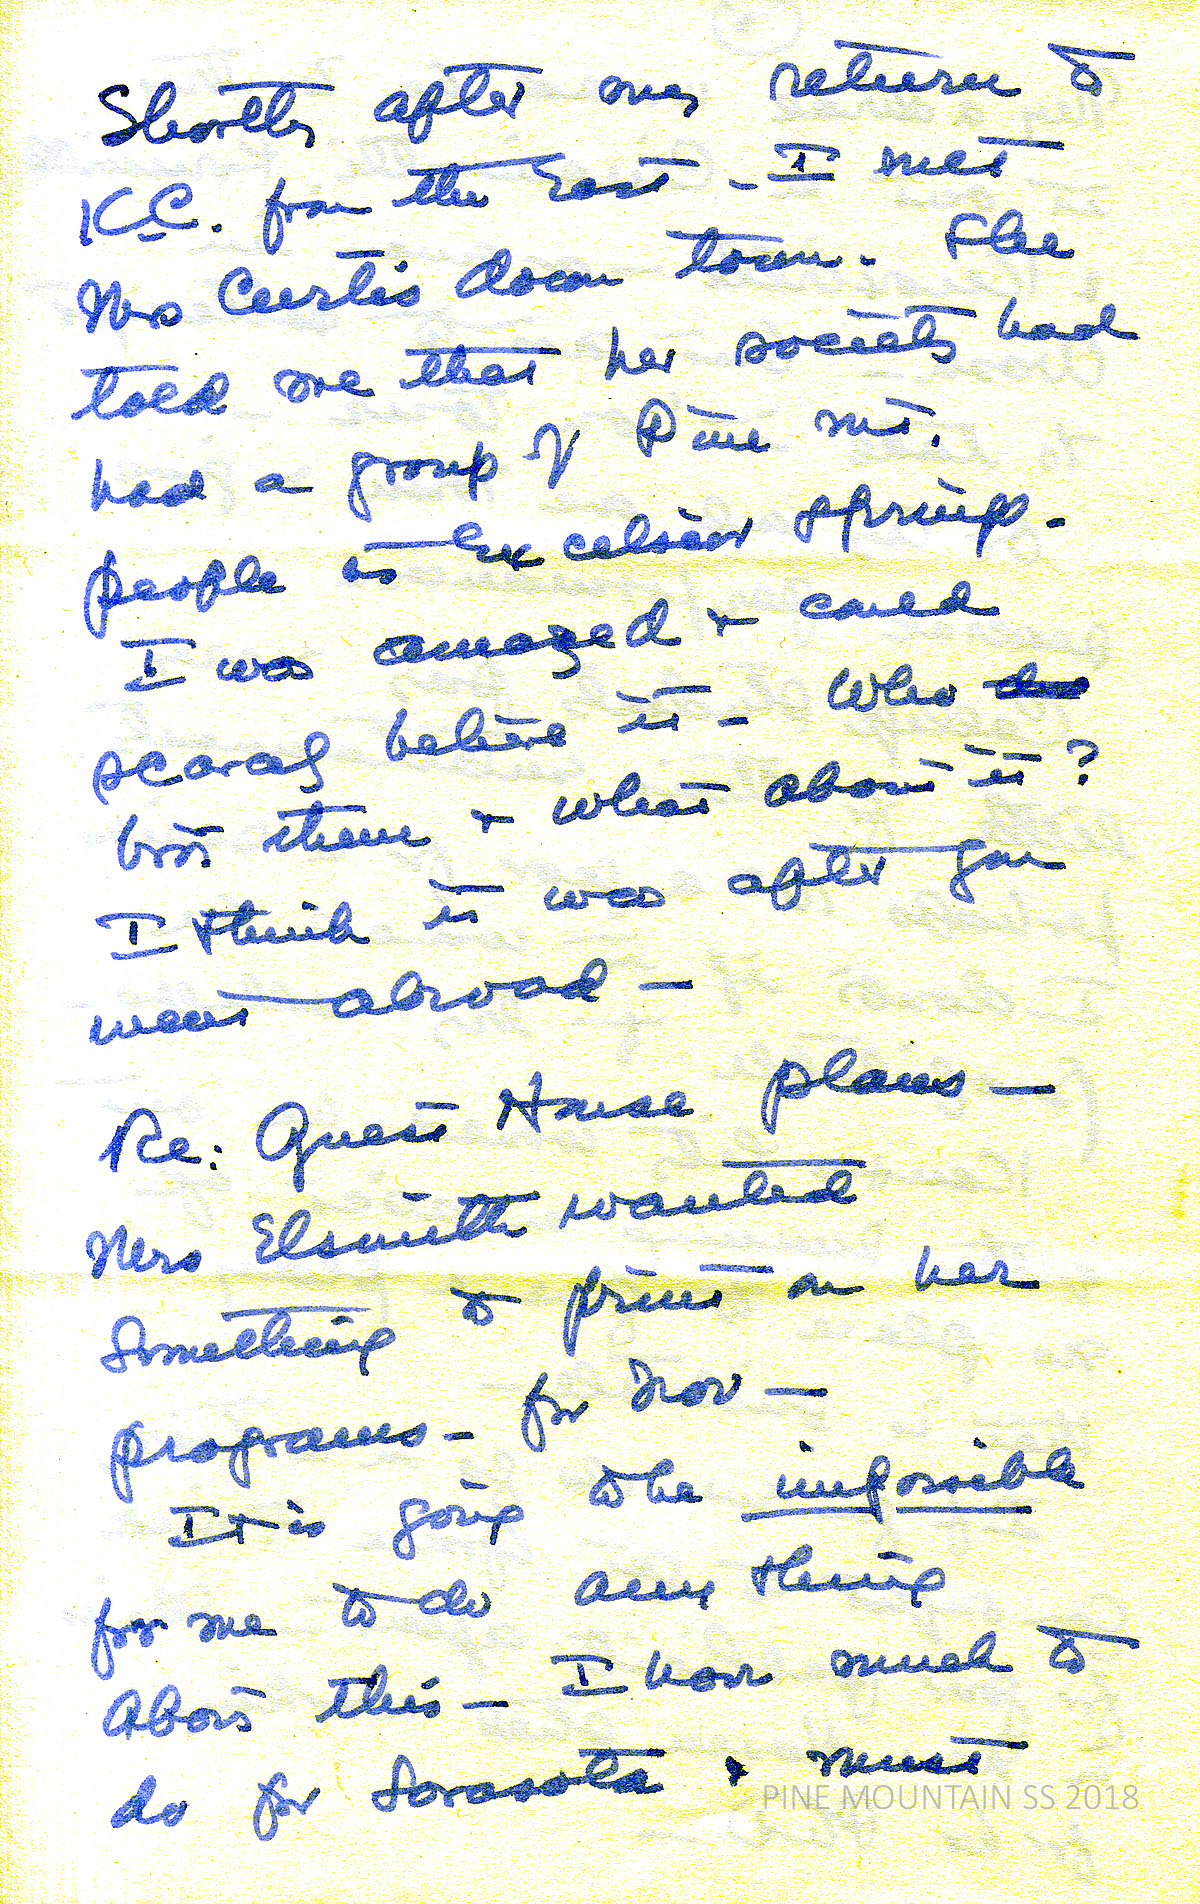 Shortly after my return to
K.C. from the East - I met
Mrs Curtis down town. She
told me that her society had
had a group of Pine Mt.
people in Excelsior Springs -
I was amazed + could
scarcely believe it - Who
bro't them + what about it?
I think it was after you
went abroad -
Re: Guest House plans -
Mrs Elsmith wanted
something to print on her
programs - for Nov -
It is going to be impossible
for me to do any thing
about this - I have much to
do for Sarasota + must
PINE MOUNTAIN SS 2018